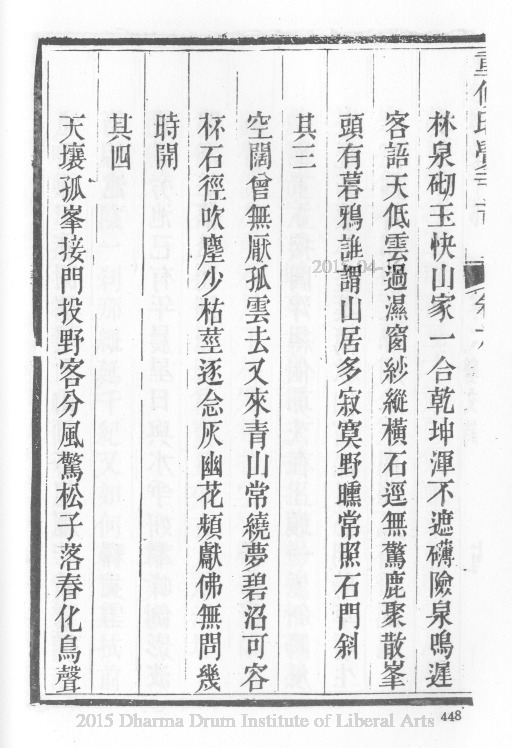 林泉砌玉快山家一合乾坤渾不遮礴險泉鳴遲
客語天低雲過濕窗紗縱橫石逕無驚鹿聚散峯
頭有暮鴉誰謂山居多寂寞野曛常照石門斜
其三
空闊曾無厭孤雲去又來青山常繞夢碧沼可容
杯石徑吹塵少枯莖逐念灰幽花頻獻佛無問幾
時開
其四
天壤孤峯接門投野客分風驚松子落春化鳥聲
448
2015 Dharma Drum Institute of Liberal Arts